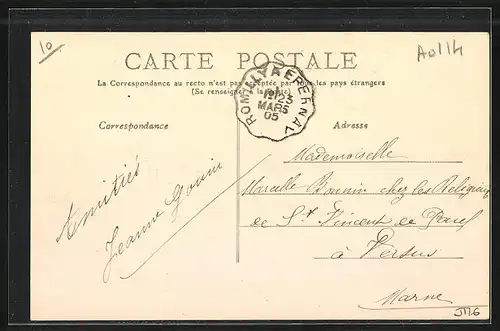 10
CARTE POSTALE
A0114
La Correspondance au recto n'est pas acceptée par tous les pays étrangers
(Se renseigner à la poste)
ROMILLY A EPERNAY
23
MARS
05
Correspondance
Adresse
Amitiés
Jeanne Gouin
Mademoiselle
Marcelle Bonnin chez les Religieuses
de St Vincent de Paul
à Vertus
Marne
JM6